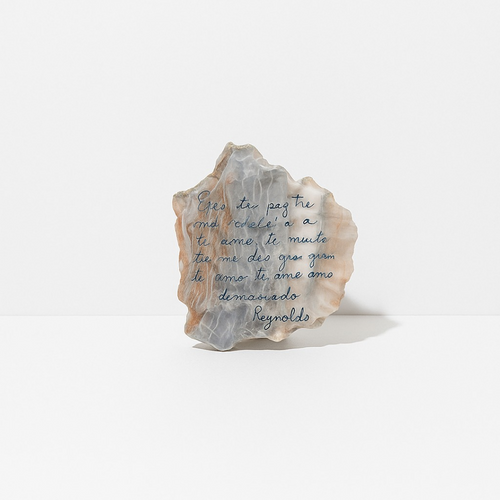 Eres te pag the
md coele' a a
te ame te muito
tie me des gros gram
te amo te ame amo
demasiado
Reynolds